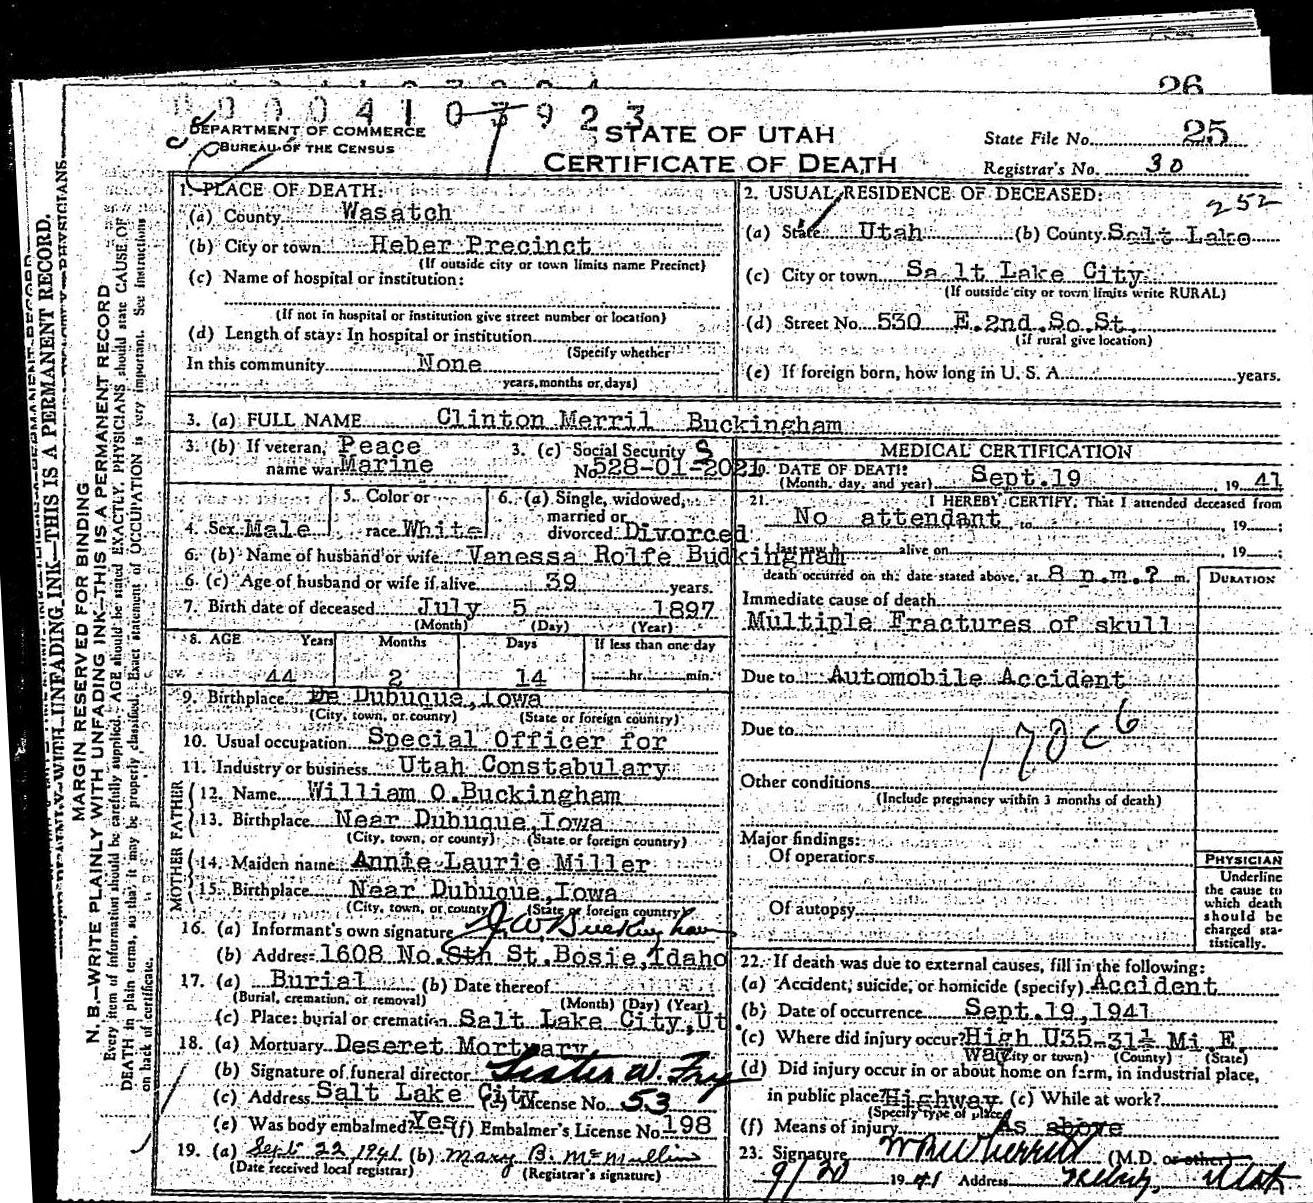 26
0 0 0 4 1 0 3 9 2 3
DEPARTMENT OF COMMERCE
BUREAU OF THE CENSUS
STATE OF UTAH
CERTIFICATE OF DEATH
State File No. 25
Registrar's No. 30
1. PLACE OF DEATH:
(a) County Wasatch
(b) City or town Heber Precinct
(If outside city or town limits name Precinct)
(c) Name of hospital or institution:
(If not in hospital or institution give street number or location)
(d) Length of stay: In hospital or institution
(Specify whether
In this community None
years, months or days)
2. USUAL RESIDENCE OF DECEASED:
252
(a) State Utah (b) County Salt Lake
(c) City or town Salt Lake City
(If outside city or town limits write RURAL)
(d) Street No. 530 E.2nd.So.St.
(If rural give location)
(e) If foreign born, how long in U. S. A. years.
3. (a) FULL NAME Clinton Merril Buckingham
3. (b) If veteran, Peace
name war Marine
3. (c) Social Security S
No. 528-01-2021
4. Sex Male
5. Color or
race White
6. (a) Single, widowed,
married or
divorced. Divorced
6. (b) Name of husband or wife Vanessa Rolfe Buckingham
6. (c) Age of husband or wife if alive 39 years.
7. Birth date of deceased July 5 1897
(Month) (Day) (Year)
8. AGE Years Months Days If less than one day
44 2 14 hr. min.
9. Birthplace De Dubuque, Iowa
(City, town, or county) (State or foreign country)
10. Usual occupation Special Officer for
11. Industry or business Utah Constabulary
FATHER
12. Name William O. Buckingham
13. Birthplace Near Dubuque Iowa
(City, town, or county) (State or foreign country)
MOTHER
14. Maiden name Annie Laurie Miller
15. Birthplace Near Dubuque, Iowa
(City, town, or county) (State or foreign country)
16. (a) Informant's own signature J. W. Buckingham
(b) Address 1608 No. 8th St. Bosie, Idaho
17. (a) Burial (b) Date thereof
(Burial, cremation, or removal) (Month) (Day) (Year)
(c) Place: burial or cremation Salt Lake City, Ut
18. (a) Mortuary Deseret Mortuary
(b) Signature of funeral director Lester W. Fry
(c) Address Salt Lake City License No. 53
(e) Was body embalmed? Yes (f) Embalmer's License No. 198
19. (a) Sept 22 1941 (b) Mary B. McMullin
(Date received local registrar) (Registrar's signature)
MEDICAL CERTIFICATION
20. DATE OF DEATH: Sept.19 19 41
(Month, day, and year)
21. I HEREBY CERTIFY, That I attended deceased from
No attendant to , 19
alive on , 19
death occurred on the date stated above, at 8 p.m.? m.
DURATION
Immediate cause of death
Multiple Fractures of skull
Due to Automobile Accident
Due to 170c6
Other conditions
(Include pregnancy within 3 months of death)
Major findings:
Of operations
Of autopsy
PHYSICIAN
Underline
the cause to
which death
should be
charged sta-
tistically.
22. If death was due to external causes, fill in the following:
(a) Accident, suicide, or homicide (specify) Accident
(b) Date of occurrence Sept.19,1941
(c) Where did injury occur? High U35-31½ Mi.E.
way (City or town) (County) (State)
(d) Did injury occur in or about home on farm, in industrial place,
in public place? Highway (e) While at work?
(Specify type of place)
(f) Means of injury As above
23. Signature (M.D. or other)
9/20 19 41 Address Heber, Utah
MARGIN RESERVED FOR BINDING
N. B.—WRITE PLAINLY WITH UNFADING INK—THIS IS A PERMANENT RECORD
Every item of information should be carefully supplied. AGE should be stated EXACTLY. PHYSICIANS should state CAUSE OF
DEATH in plain terms, so that it may be properly classified. Exact statement of OCCUPATION is very important. See instructions
on back of certificate.